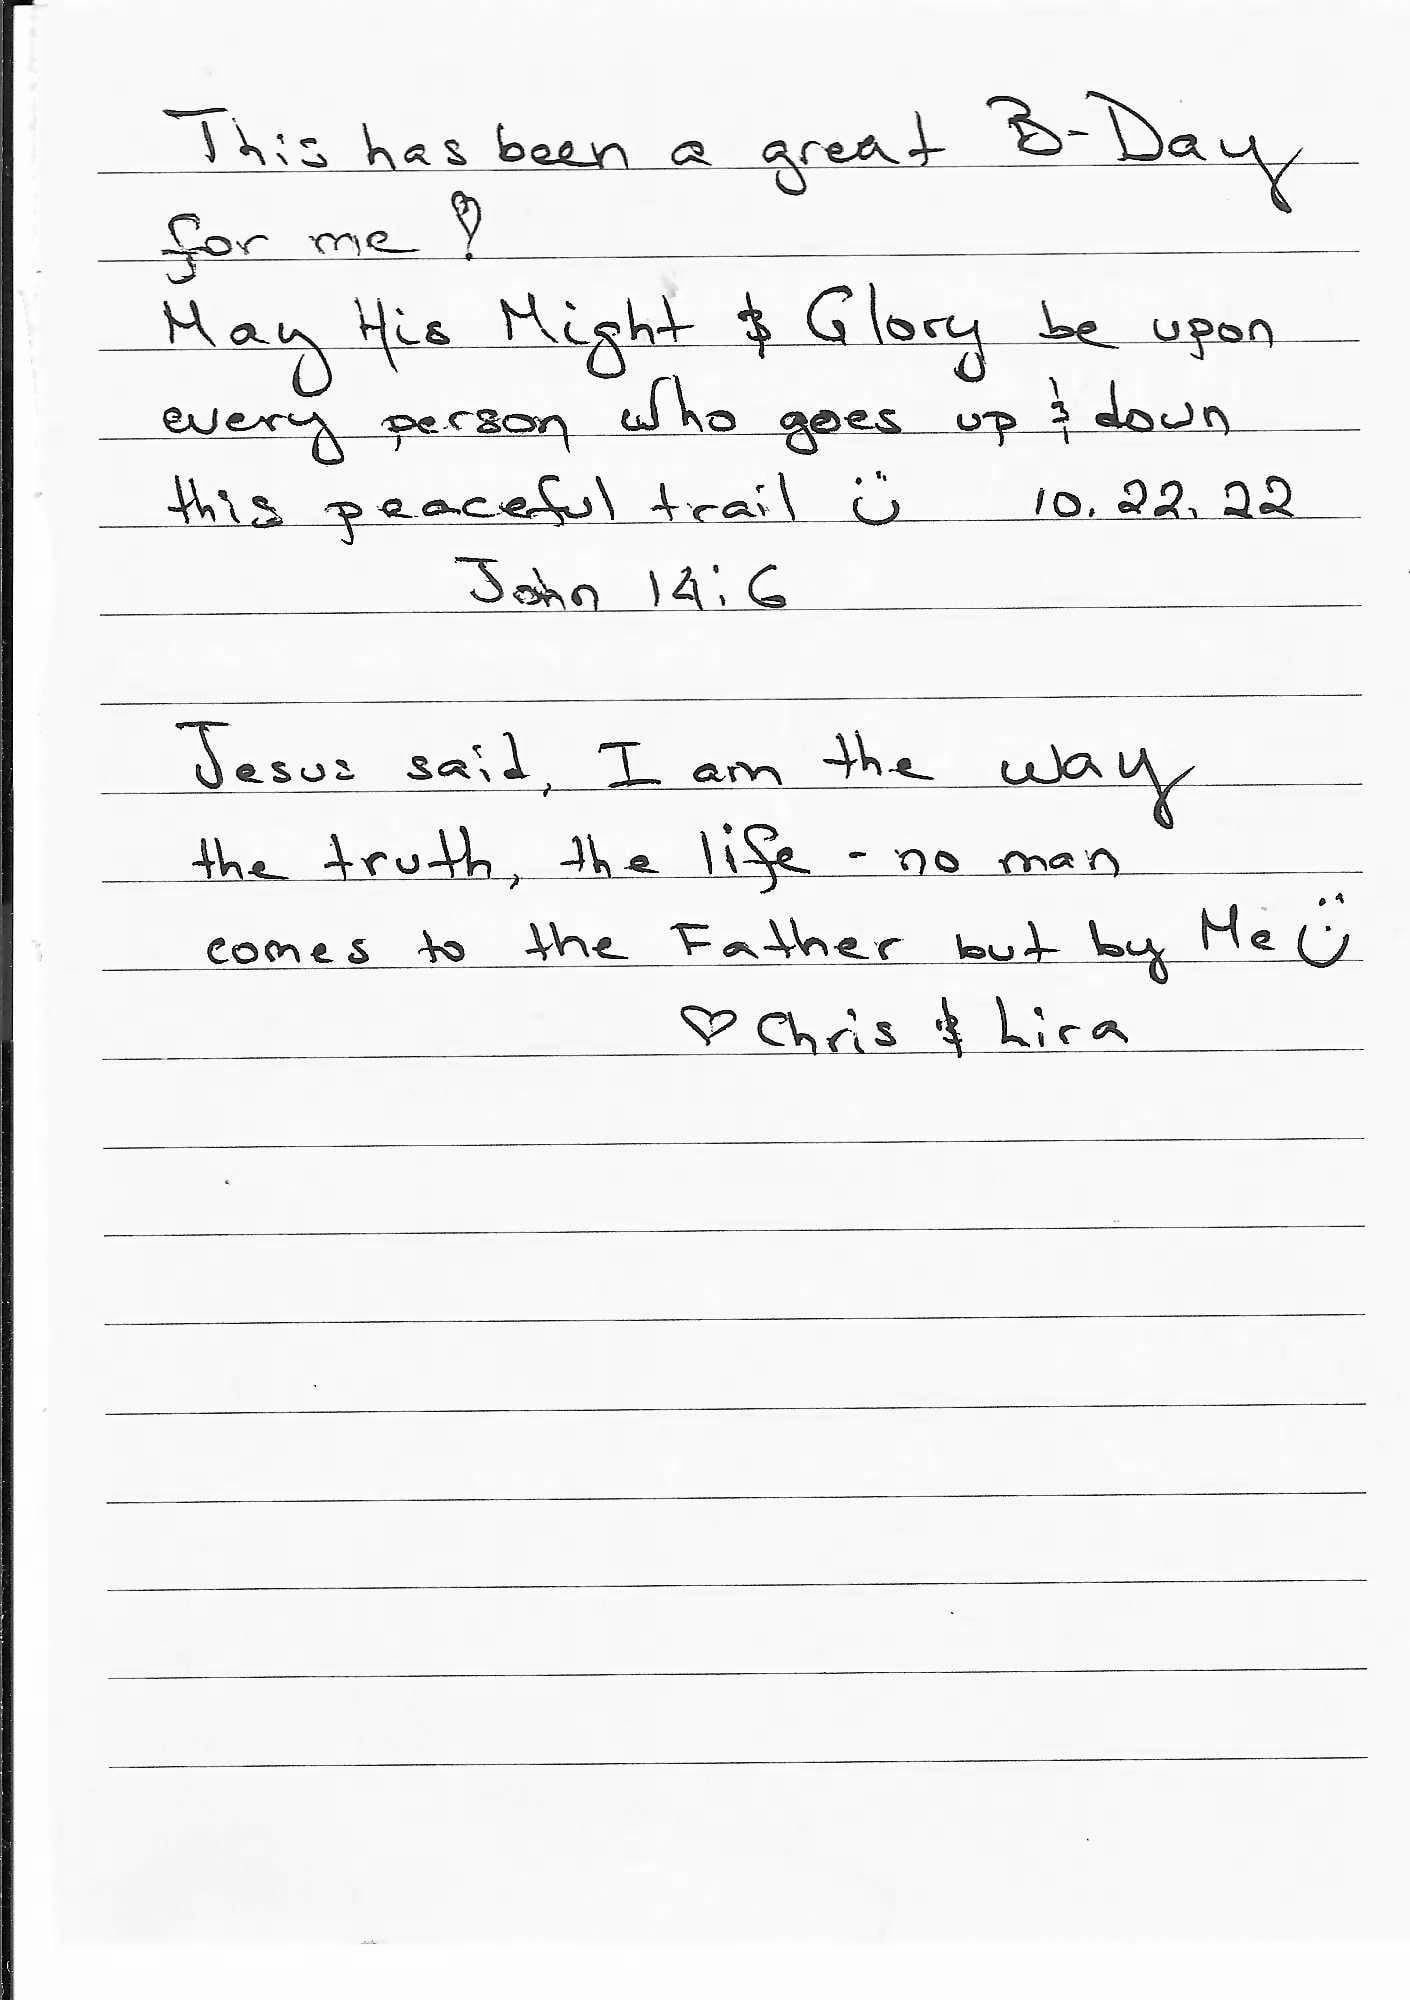 This has been a great B-Day
for me!
May His Might & Glory be upon
every person who goes up & down
this peaceful trail ☺ 10.22.22
John 14:6
Jesus said, I am the way
the truth, the life - no man
comes to the Father but by Me ☺
♡ Chris & Lira